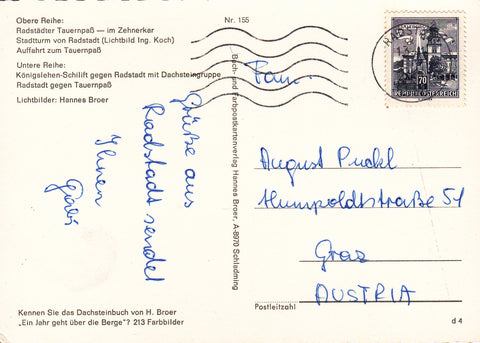 Obere Reihe:
Radstädter Tauernpaß — im Zehnerkar
Stadtturm von Radstadt (Lichtbild Ing. Koch)
Auffahrt zum Tauernpaß
Untere Reihe:
Königslehen-Schilift gegen Radstadt mit Dachsteingruppe
Radstadt gegen Tauernpaß
Lichtbilder: Hannes Broer
Nr. 155
Grüße aus
Radstadt sendet
Ihnen
Buch- und Farbpostkartenverlag Hannes Broer, A-8970 Schladming
70
REPUBLIK ÖSTERREICH
Fam.
August Puckl
Humpoldtstraße 51
Graz
AUSTRIA
Postleitzahl
Kennen Sie das Dachsteinbuch von H. Broer
„Ein Jahr geht über die Berge"? 213 Farbbilder
d 4